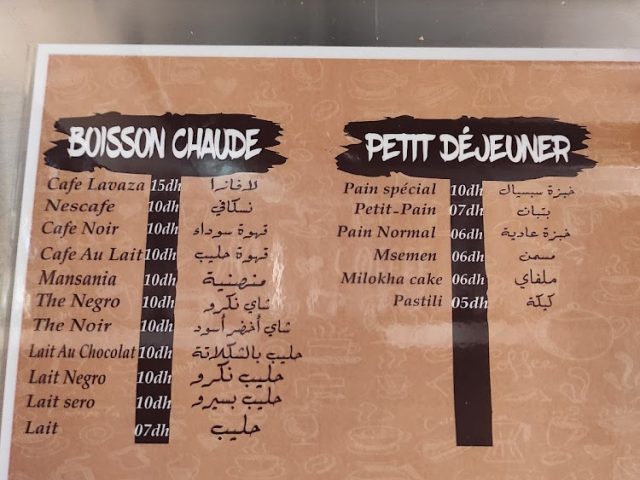 BOISSON CHAUDE
Cafe Lavaza 15dh لافازا
Nescafe 10dh نسكافي
Cafe Noir 10dh قهوة سوداء
Cafe Au Lait 10dh قهوة حليب
Mansania 10dh منصنية
The Negro 10dh شاي نكرو
The Noir 10dh شاي أخضر أسود
Lait Au Chocolat 10dh حليب بالشكلاتة
Lait Negro 10dh حليب نكرو
Lait sero 10dh حليب بسيرو
Lait 07dh حليب
PETIT DÉJEUNER
Pain spécial 10dh خبزة سبسيال
Petit-Pain 07dh بتبان
Pain Normal 06dh خبزة عادية
Msemen 06dh مسمن
Milokha cake 06dh ملفاي
Pastili 05dh كيكة